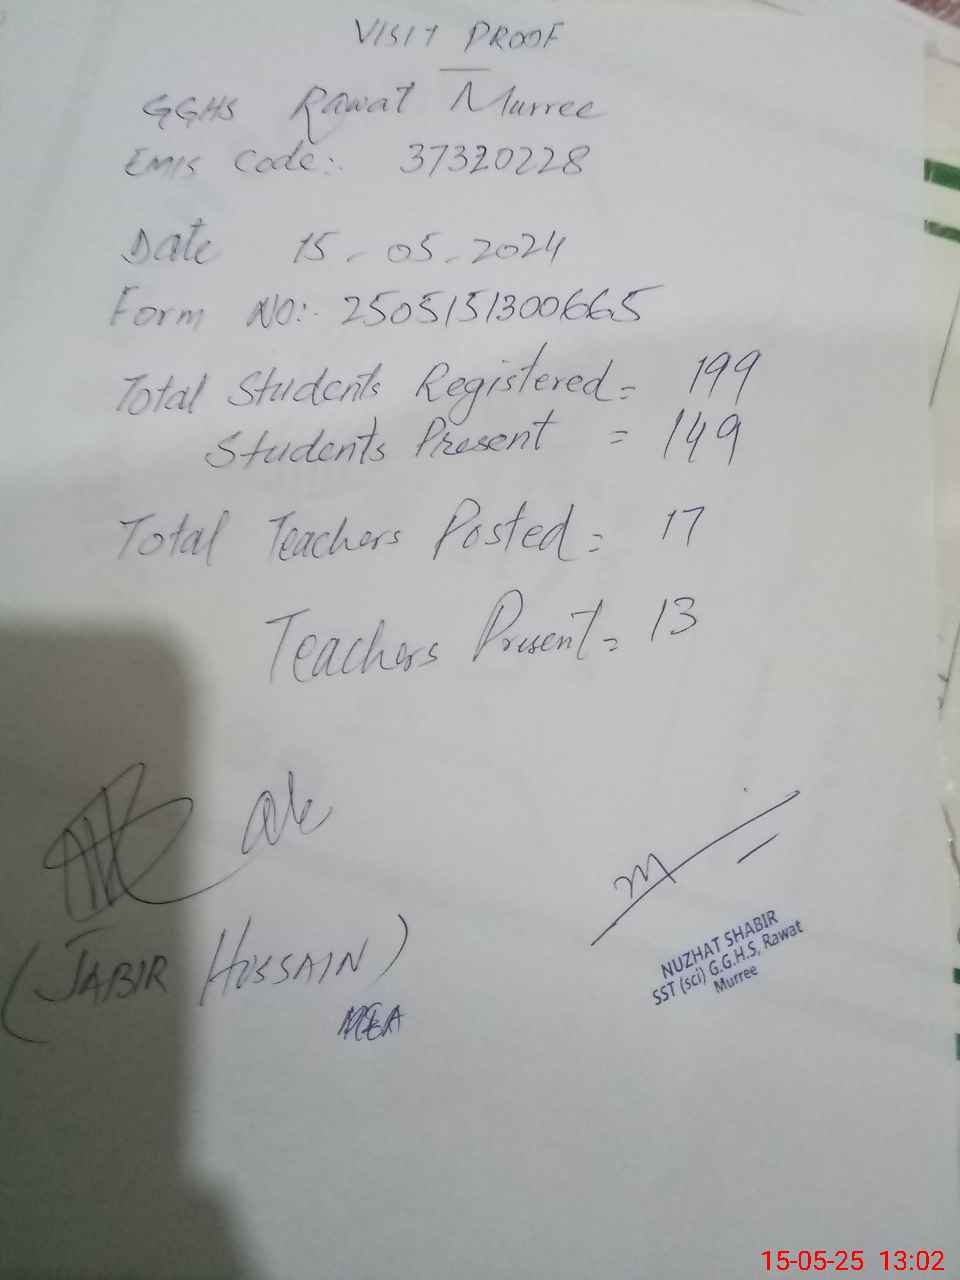 VISIT PROOF
GGHS Rawat Murree
EMIS Code:. 37320228
Date 15-05-2024
Form NO:. 2505151300665
Total Students Registered = 199
Students Present = 149
Total Teachers Posted = 17
Teachers Present = 13
(JABIR HUSSAIN)
MEA
NUZHAT SHABIR
SST (sci) G.G.H.S, Rawat
Murree
15-05-25 13:02